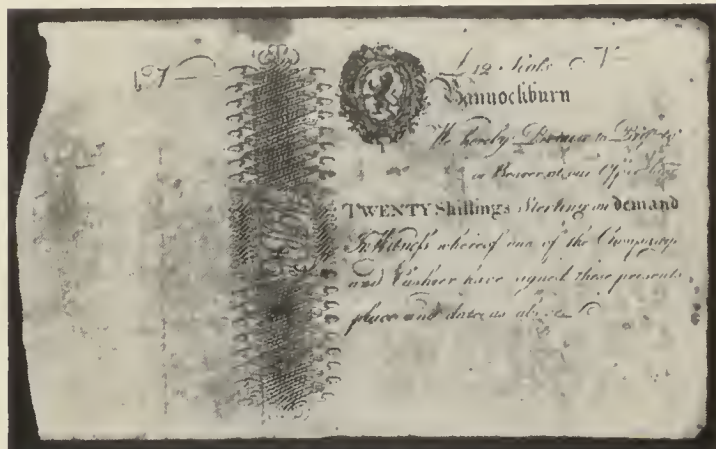 £ 12 Scots
Bannockburn
We hereby Promise to
or Bearer at our Office here
TWENTY Shillings Sterling on demand
In Witness whereof one of the Company
and Cashier have signed these presents
place and date as above